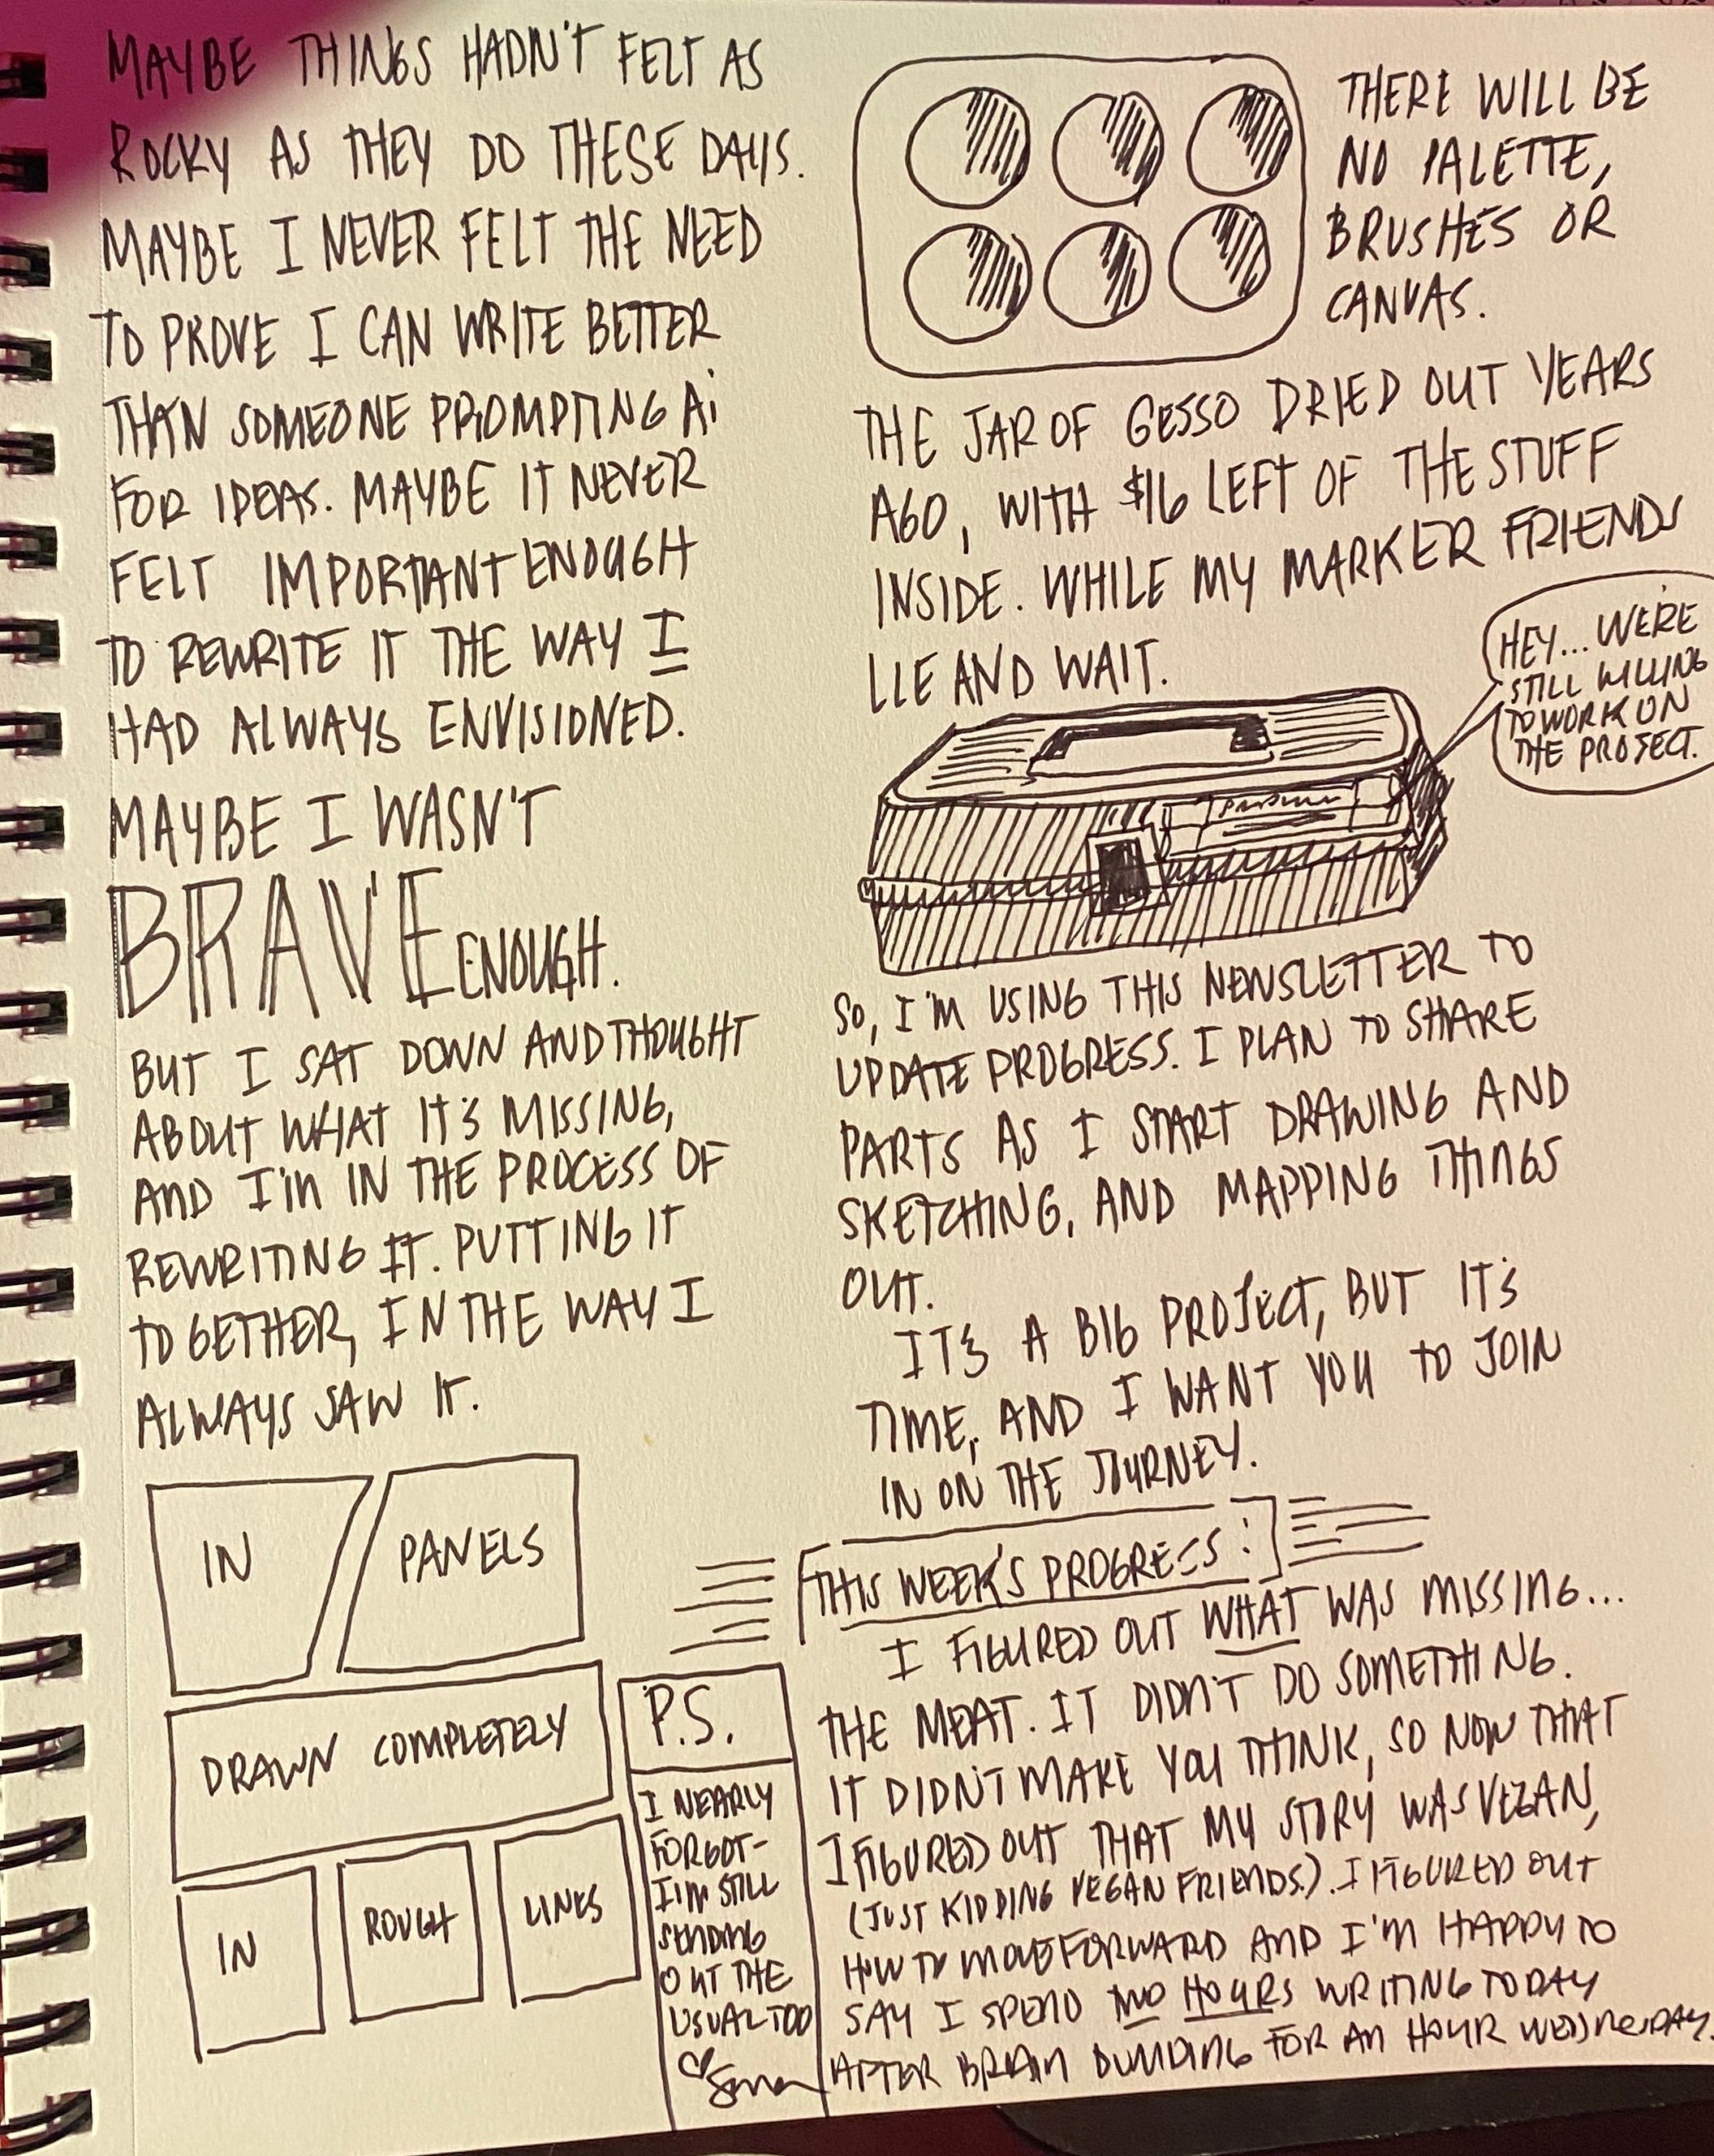 MAYBE THINGS HADN'T FELT AS
ROCKY AS THEY DO THESE DAYS.
MAYBE I NEVER FELT THE NEED
TO PROVE I CAN WRITE BETTER
THAN SOMEONE PROMPTING Ai
FOR IDEAS. MAYBE IT NEVER
FELT IMPORTANT ENOUGH
TO REWRITE IT THE WAY I
HAD ALWAYS ENVISIONED.
MAYBE I WASN'T
BRAVE ENOUGH.
BUT I SAT DOWN AND THOUGHT
ABOUT WHAT IT'S MISSING,
AND I'm IN THE PROCESS OF
REWRITING IT. PUTTING IT
TOGETHER, IN THE WAY I
ALWAYS SAW IT.
IN
PANELS
DRAWN COMPLETELY
IN
ROUGH
LINES
P.S.
I NEARLY
FORGOT-
I'm STILL
SENDING
OUT THE
USUAL TOO
THERE WILL BE
NO PALETTE,
BRUSHES OR
CANVAS.
THE JAR OF GESSO DRIED OUT YEARS
AGO, WITH $16 LEFT OF THE STUFF
INSIDE. WHILE MY MARKER FRIENDS
LIE AND WAIT.
HEY... WE'RE
STILL WILLING
TO WORK ON
THE PROJECT.
SO, I'm USING THIS NEWSLETTER TO
UPDATE PROGRESS. I PLAN TO SHARE
PARTS AS I START DRAWING AND
SKETCHING, AND MAPPING THINGS
OUT.
IT'S A BIG PROJECT, BUT IT'S
TIME, AND I WANT YOU TO JOIN
IN ON THE JOURNEY.
THIS WEEK'S PROGRESS:
I FIGURED OUT WHAT WAS MISSING...
THE MEAT. IT DIDN'T DO SOMETHING.
IT DIDN'T MAKE YOU THINK, SO NOW THAT
I FIGURED OUT THAT MY STORY WAS VEGAN,
(JUST KIDDING VEGAN FRIENDS.). I FIGURED OUT
HOW TO MOVE FORWARD AND I'M HAPPY TO
SAY I SPEND TWO HOURS WRITING TODAY
AFTER BRAIN DUMPING FOR AN HOUR WEDNESDAY.